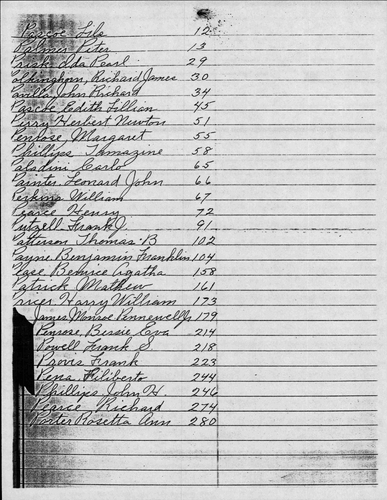 Pascoe Lila 12
Palmer Peter 13
Prisk Ida Pearl 29
Polkinghorn, Richard James 30
Paull John Richard 34
Prisk Edith Lillian 45
Perry Herbert Newton 51
Penrose Margaret 55
Phillips Thomazine 58
Paladini Carlo 65
Painter, Leonard John 66
Perkins William 67
Pearce Henry 72
Putzell Frank J. 91
Patterson Thomas B 102
Payne Benjamin Franklin 104
Place Bernice Agatha 158
Patrick Mathew 161
Prices Harry William 173
James Monroe Pennewell Jr 179
Penrose, Bessie Eva 214
Powell Frank S 218
Provis Frank 223
Pena, Filiberto 244
Phillips John H. 246
Pearce Richard 274
Porter Rosetta Ann 280